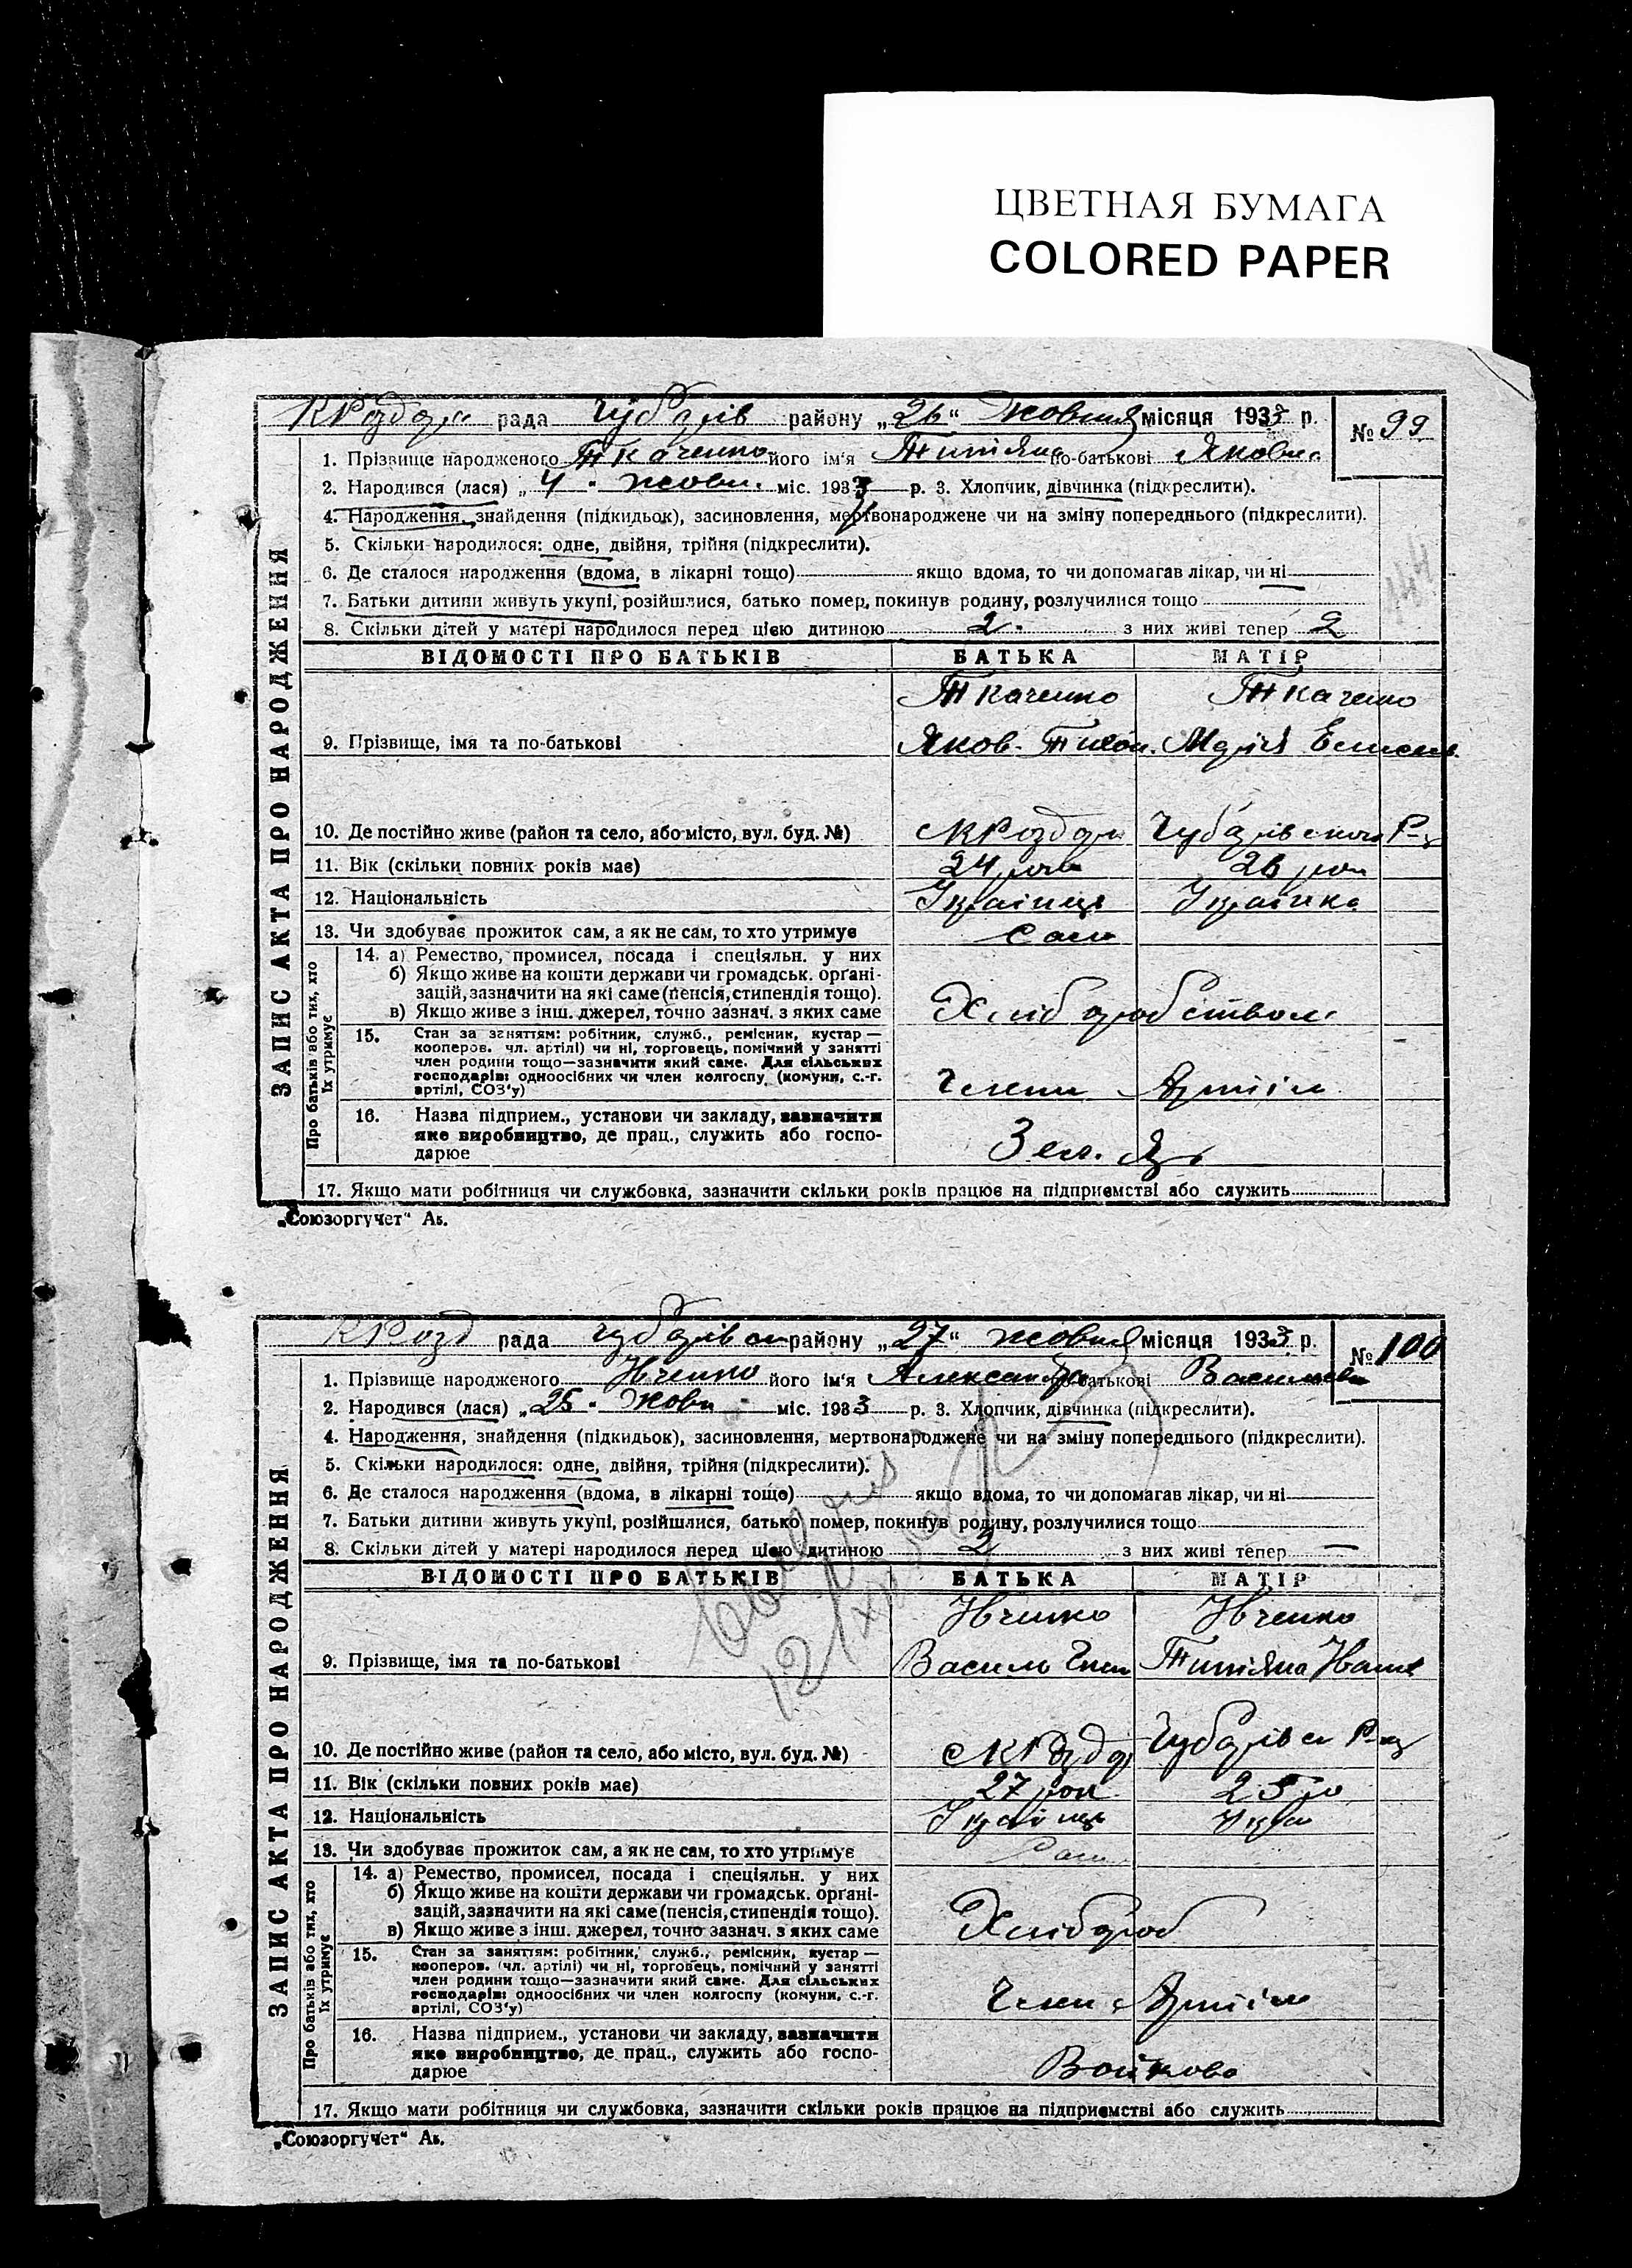 ЦВЕТНАЯ БУМАГА
COLORED PAPER
рада Чубарів району „26“ Жовтня місяця 1933 р. № 99
1. Прізвище народженого Ткаченко його ім'я Титяна по-батькові Яковна
2. Народився (лася) „4“ жовт. міс. 1933 р. 3. Хлопчик, дівчинка (підкреслити).
4. Народження, знайдення (підкидьок), засиновлення, мертвонароджене чи на зміну попереднього (підкреслити).
5. Скільки народилося: одне, двійня, трійня (підкреслити).
6. Де сталося народження (вдома, в лікарні тощо) якщо вдома, то чи допомагав лікар, чи ні
7. Батьки дитини живуть укупі, розійшлися, батько помер, покинув родину, розлучилися тощо
8. Скільки дітей у матері народилося перед цією дитиною 2 з них живі тепер 2
ВІДОМОСТІ ПРО БАТЬКІВ БАТЬКА МАТІР
Ткаченко Ткаченко
9. Прізвище, імя та по-батькові Яков Тихон. Марія Елисеев.
10. Де постійно живе (район та село, або місто, вул. буд. №) Чубарівського Р-у
11. Вік (скільки повних років має) 24 рок 26 рок
12. Національність Українць Українка
13. Чи здобуває прожиток сам, а як не сам, то хто утримує Сам
14. а) Ремество, промисел, посада і спеціяльн. у них
б) Якщо живе на кошти держави чи громадськ. орґані-
зацій, зазначити на які саме (пенсія, стипендія тощо).
в) Якщо живе з інш. джерел, точно зазнач. з яких саме Хліборобством
15. Стан за заняттям: робітник, служб., ремісник, кустар —
кооперов. чл. артілі) чи ні, торговець, помічний у занятті
член родини тощо—зазначити який саме. Для сільських
господарів: одноосібних чи член колгоспу (комуни, с.-г.
артілі, СОЗ'у) Член Артіли
16. Назва підприєм., установи чи закладу, зазначити
яке виробництво, де прац., служить або госпо-
дарює
17. Якщо мати робітниця чи службовка, зазначити скільки років працює на підприємстві або служить
ЗАПИС АКТА ПРО НАРОДЖЕННЯ
Про батьків або тих, хто їх утримує
„Союзоргучет“ Аб.
рада Чубарівськ району „27“ жовтня місяця 1933 р. № 100
1. Прізвище народженого Івченко його ім'я Александра по-батькові Васильев
2. Народився (лася) „25“ Жовт міс. 1933 р. 3. Хлопчик, дівчинка (підкреслити).
4. Народження, знайдення (підкидьок), засиновлення, мертвонароджене чи на зміну попереднього (підкреслити).
5. Скільки народилося: одне, двійня, трійня (підкреслити).
6. Де сталося народження (вдома, в лікарні тощо) якщо вдома, то чи допомагав лікар, чи ні
7. Батьки дитини живуть укупі, розійшлися, батько помер, покинув родину, розлучилися тощо
8. Скільки дітей у матері народилося перед цією дитиною 2 з них живі тепер —
ВІДОМОСТІ ПРО БАТЬКІВ БАТЬКА МАТІР
Івченко Івченко
9. Прізвище, імя та по-батькові Василь Титяна Іванов
10. Де постійно живе (район та село, або місто, вул. буд. №) Чубарівськ Р-у
11. Вік (скільки повних років має) 27 рок 25 ро
12. Національність Українць Укра
13. Чи здобуває прожиток сам, а як не сам, то хто утримує Сам
14. а) Ремество, промисел, посада і спеціяльн. у них
б) Якщо живе на кошти держави чи громадськ. орґані-
зацій, зазначити на які саме (пенсія, стипендія тощо).
в) Якщо живе з інш. джерел, точно зазнач. з яких саме Хлібороб
15. Стан за заняттям: робітник, служб., ремісник, кустар —
кооперов. (чл. артілі) чи ні, торговець, помічний у занятті
член родини тощо—зазначити який саме. Для сільських
господарів: одноосібних чи член колгоспу (комуни, с.-г.
артілі, СОЗ'у) Член Артіли
16. Назва підприєм., установи чи закладу, зазначити
яке виробництво, де прац., служить або госпо-
дарює Войкова
17. Якщо мати робітниця чи службовка, зазначити скільки років працює на підприємстві або служить
ЗАПИС АКТА ПРО НАРОДЖЕННЯ
Про батьків або тих, хто їх утримує
„Союзоргучет“ Аб.